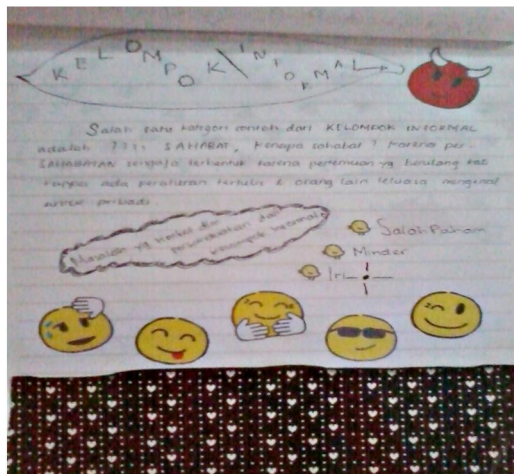 KELOMPOK INFORMAL
Salah satu kategori contoh dari KELOMPOK INFORMAL
adalah ???? SAHABAT, Kenapa sahabat? Karena per-
SAHABATAN sengaja terbentuk karena pertemuan yg berulang kali
tanpa ada peraturan tertulis & orang lain leluasa mengenal
pribadi.
Masalah yg timbul dlm
persahabatan dari
kelompok informal
Salah Paham
Minder
Iri